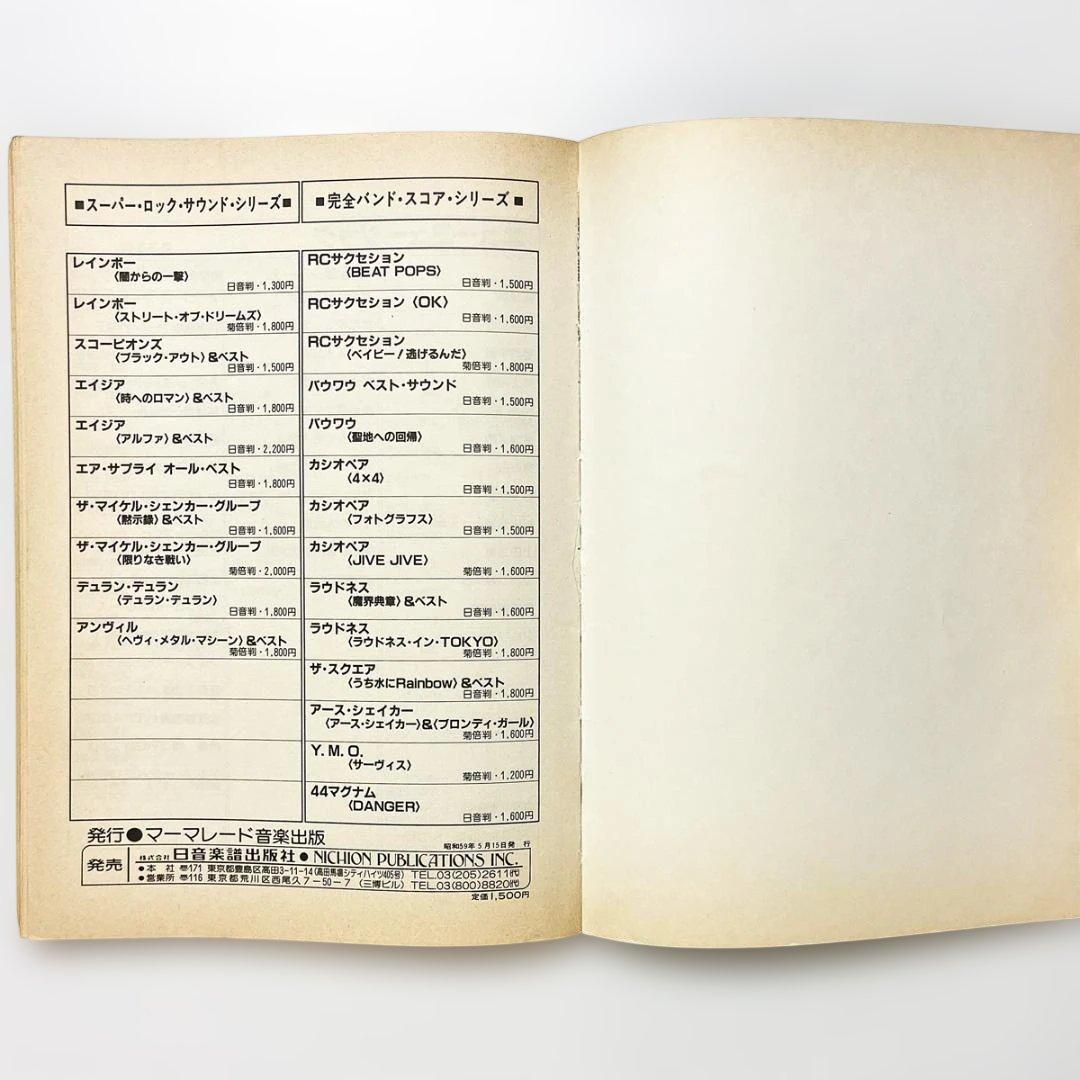 ■スーパー・ロック・サウンド・シリーズ■
レインボー
〈闇からの一撃〉
日音判・1,300円
レインボー
〈ストリート・オブ・ドリームズ〉
菊倍判・1,800円
スコーピオンズ
〈ブラック・アウト〉&ベスト
日音判・1,500円
エイジア
〈時へのロマン〉&ベスト
日音判・1,800円
エイジア
〈アルファ〉&ベスト
日音判・2,200円
エア・サプライ オール・ベスト
日音判・1,800円
ザ・マイケル・シェンカー・グループ
〈黙示録〉&ベスト
日音判・1,600円
ザ・マイケル・シェンカー・グループ
〈限りなき戦い〉
菊倍判・2,000円
デュラン・デュラン
〈デュラン・デュラン〉
日音判・1,800円
アンヴィル
〈ヘヴィ・メタル・マシーン〉&ベスト
菊倍判・1,800円
■完全バンド・スコア・シリーズ■
RCサクセション
〈BEAT POPS〉
日音判・1,500円
RCサクセション〈OK〉
日音判・1,600円
RCサクセション
〈ベイビー!逃げるんだ〉
菊倍判・1,800円
バウワウ ベスト・サウンド
日音判・1,500円
バウワウ
〈聖地への回帰〉
日音判・1,600円
カシオペア
〈4×4〉
日音判・1,500円
カシオペア
〈フォトグラフス〉
日音判・1,500円
カシオペア
〈JIVE JIVE〉
菊倍判・1,600円
ラウドネス
〈魔界典章〉&ベスト
日音判・1,600円
ラウドネス
〈ラウドネス・イン・TOKYO〉
菊倍判・1,800円
ザ・スクエア
〈うち水にRainbow〉&ベスト
日音判・1,800円
アース・シェイカー
〈アース・シェイカー〉&〈ブロンディ・ガール〉
菊倍判・1,600円
Y.M.O.
〈サーヴィス〉
菊倍判・1,200円
44マグナム
〈DANGER〉
日音判・1,600円
発行●マーマレード音楽出版
昭和59年5月15日発 行
発売
株式会社 日音楽譜出版社●NICHION PUBLICATIONS INC.
●本 社 〒171 東京都豊島区高田3-11-14(高田馬場シティハイツ405号) TEL.03(205)2611㈹
●営業所 〒116 東京都荒川区西尾久7-50-7(三博ビル) TEL.03(800)8820㈹
定価1,500円